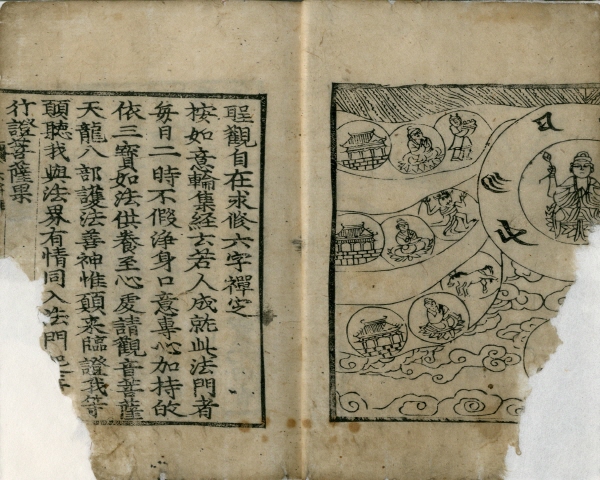 聖觀自在求修六字禪定
按如意輪集經云若人成就此法門者
每日二時不假淨身口意專心加持的
依三寶如法供養至心虔請觀音菩薩
天龍八部護法善神惟願來臨證我等
願聽我與法界有情同入法門
行證菩薩果